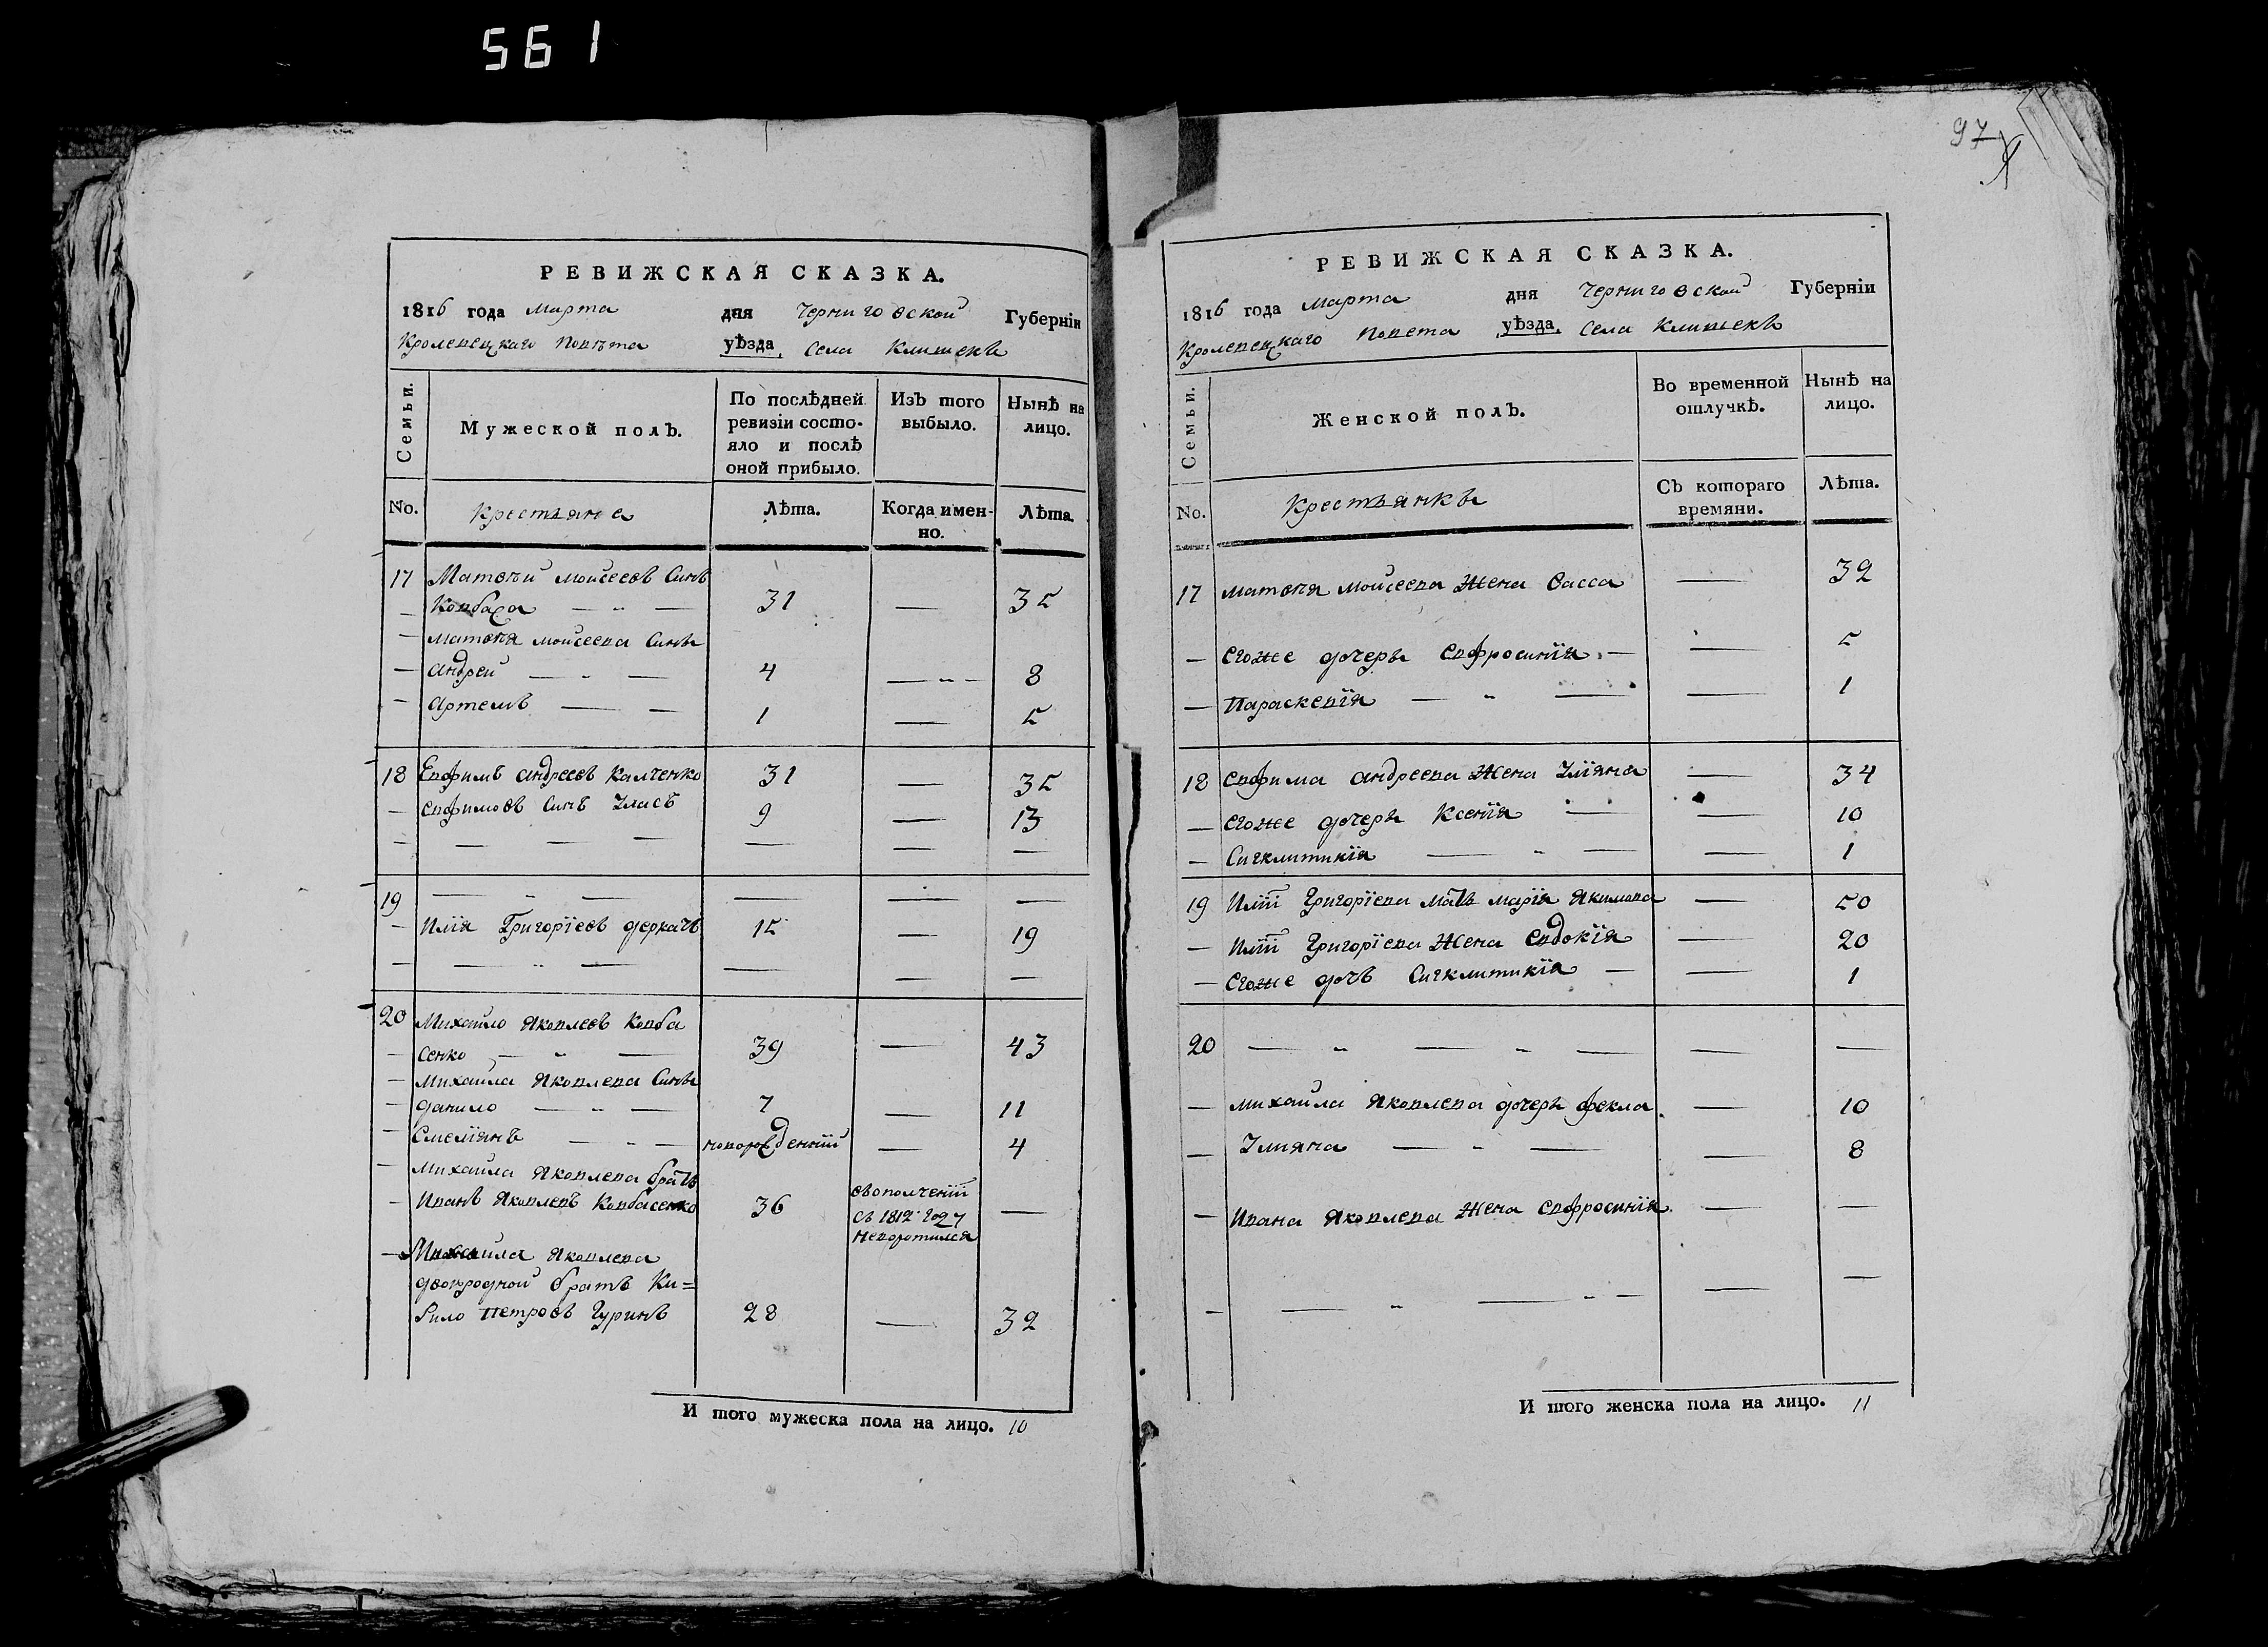 561
97
РЕВИЖСКАЯ СКАЗКА.
1816 года Марта дня Черниговской Губерніи
Кролевецкаго Повѣта уѣзда, Села Клишекъ
Семьи.
Мужеской полъ.
По послѣдней ревизіи состо-
яло и послѣ
оной прибыло.
Изъ того
выбыло.
Нынѣ на
лицо.
No. Крестьяне Лѣта. Когда имен-
но. Лѣта.
17 Матвѣй Моисеевъ Синъ
— Ковбаса — „ — 31 — 35
— Матвѣя Моисеева Сини
— Андрей — „ — 4 — „ — 8
— Артемъ — — 1 — 5
18 Евфимъ Андреевъ Калченко 31 — 35
— Евфимовъ Синъ Уласъ 9 — 13
— — — — — — —
19 — „ — — — —
— Илія Григоріевъ Деркачъ 15 — 19
— — „ — — — —
20 Михайло Яковлевъ Ковба
— сенко — „ — 39 — 43
— Михайла Яковлева Сини
— Данило — „ — 7 — 11
— Емеліянъ — „ — новорожденній — 4
— Михайла Яковлева братъ
— Иванъ Яковлевъ Ковбасенко 36 въополченіи
съ 1812 году
неворотился —
— Михайла Яковлева
двоюродной братъ Ки=
рило Петровъ Гуринъ 28 — 32
И того мужеска пола на лицо. 10
РЕВИЖСКАЯ СКАЗКА.
1816 года Марта дня Черниговской Губерніи
Кролевецкаго Повета уѣзда, Села Клишекъ
Семьи.
Женской полъ.
Во временной
отлучкѣ.
Нынѣ на
лицо.
No. Крестьянки Съ котораго
времяни. Лѣта.
17 Матвѣя Моисеева Жена Васса — 32
— Егоже дочери Евфросинія — — 5
— Параскевія — „ — — 1
18 Евфима Андреева Жена Уліяна — 34
— Егоже дочери Ксенія — — 10
— Сигклитикія — „ — — 1
19 Иліи Григоріева мать Марія Якимова — 50
— Иліи Григоріева Жена Евдокія — 20
— Егоже дочъ Сигклитикія — — 1
20 — „ — „ — — —
— Михайла Яковлева дочери Фекла — 10
— Улияна — „ — — 8
— Ивана Яковлева Жена Евфросинія — —
— — „ — „ — — —
И того женска пола на лицо. 11